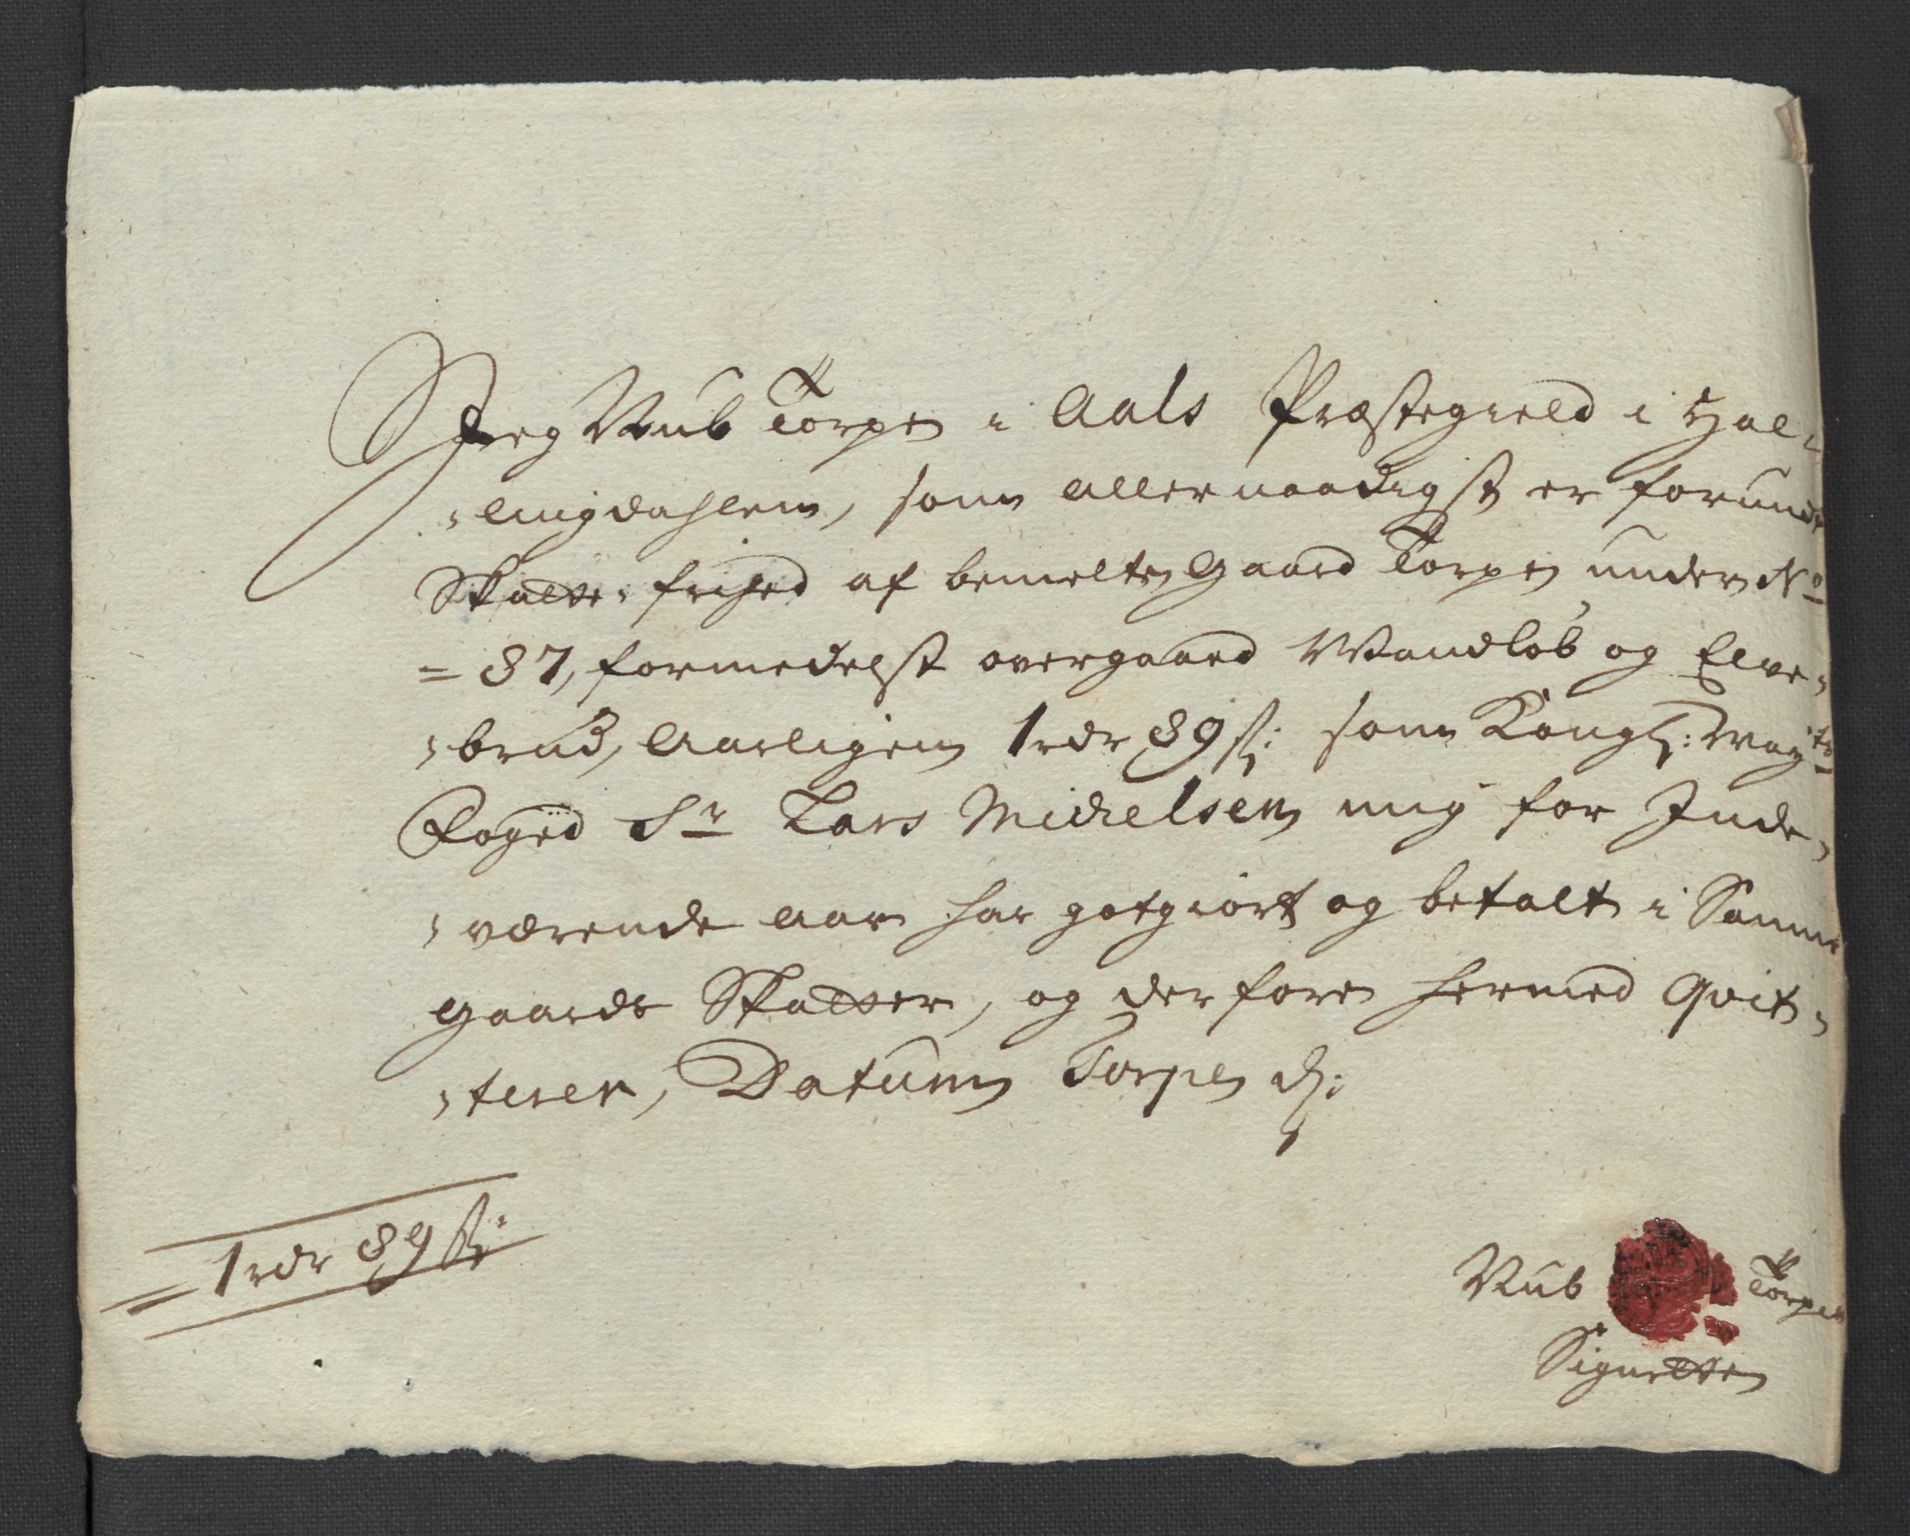 Jeg Knub Torpen i Aals Præstegield i Hal-
-lingdahlen, som allernaadigst er forundt
Skatte-frihed af bemelte gaard Torpen under No
= 87, formedelst overgaaed Wandløb og Elve-
-brud, Aarligen 1 rdr 89 s: som Kongl: May:ts
Foged Sr Lars Michelsen mig for Inde-
-værende aar har gotgiort og betalt i Samme
gaards Skatter, og derforre hermed Qvit-
-terer, Datum Torpen d:
= 1 rdr 89 s:
Knub Torpen
Signette